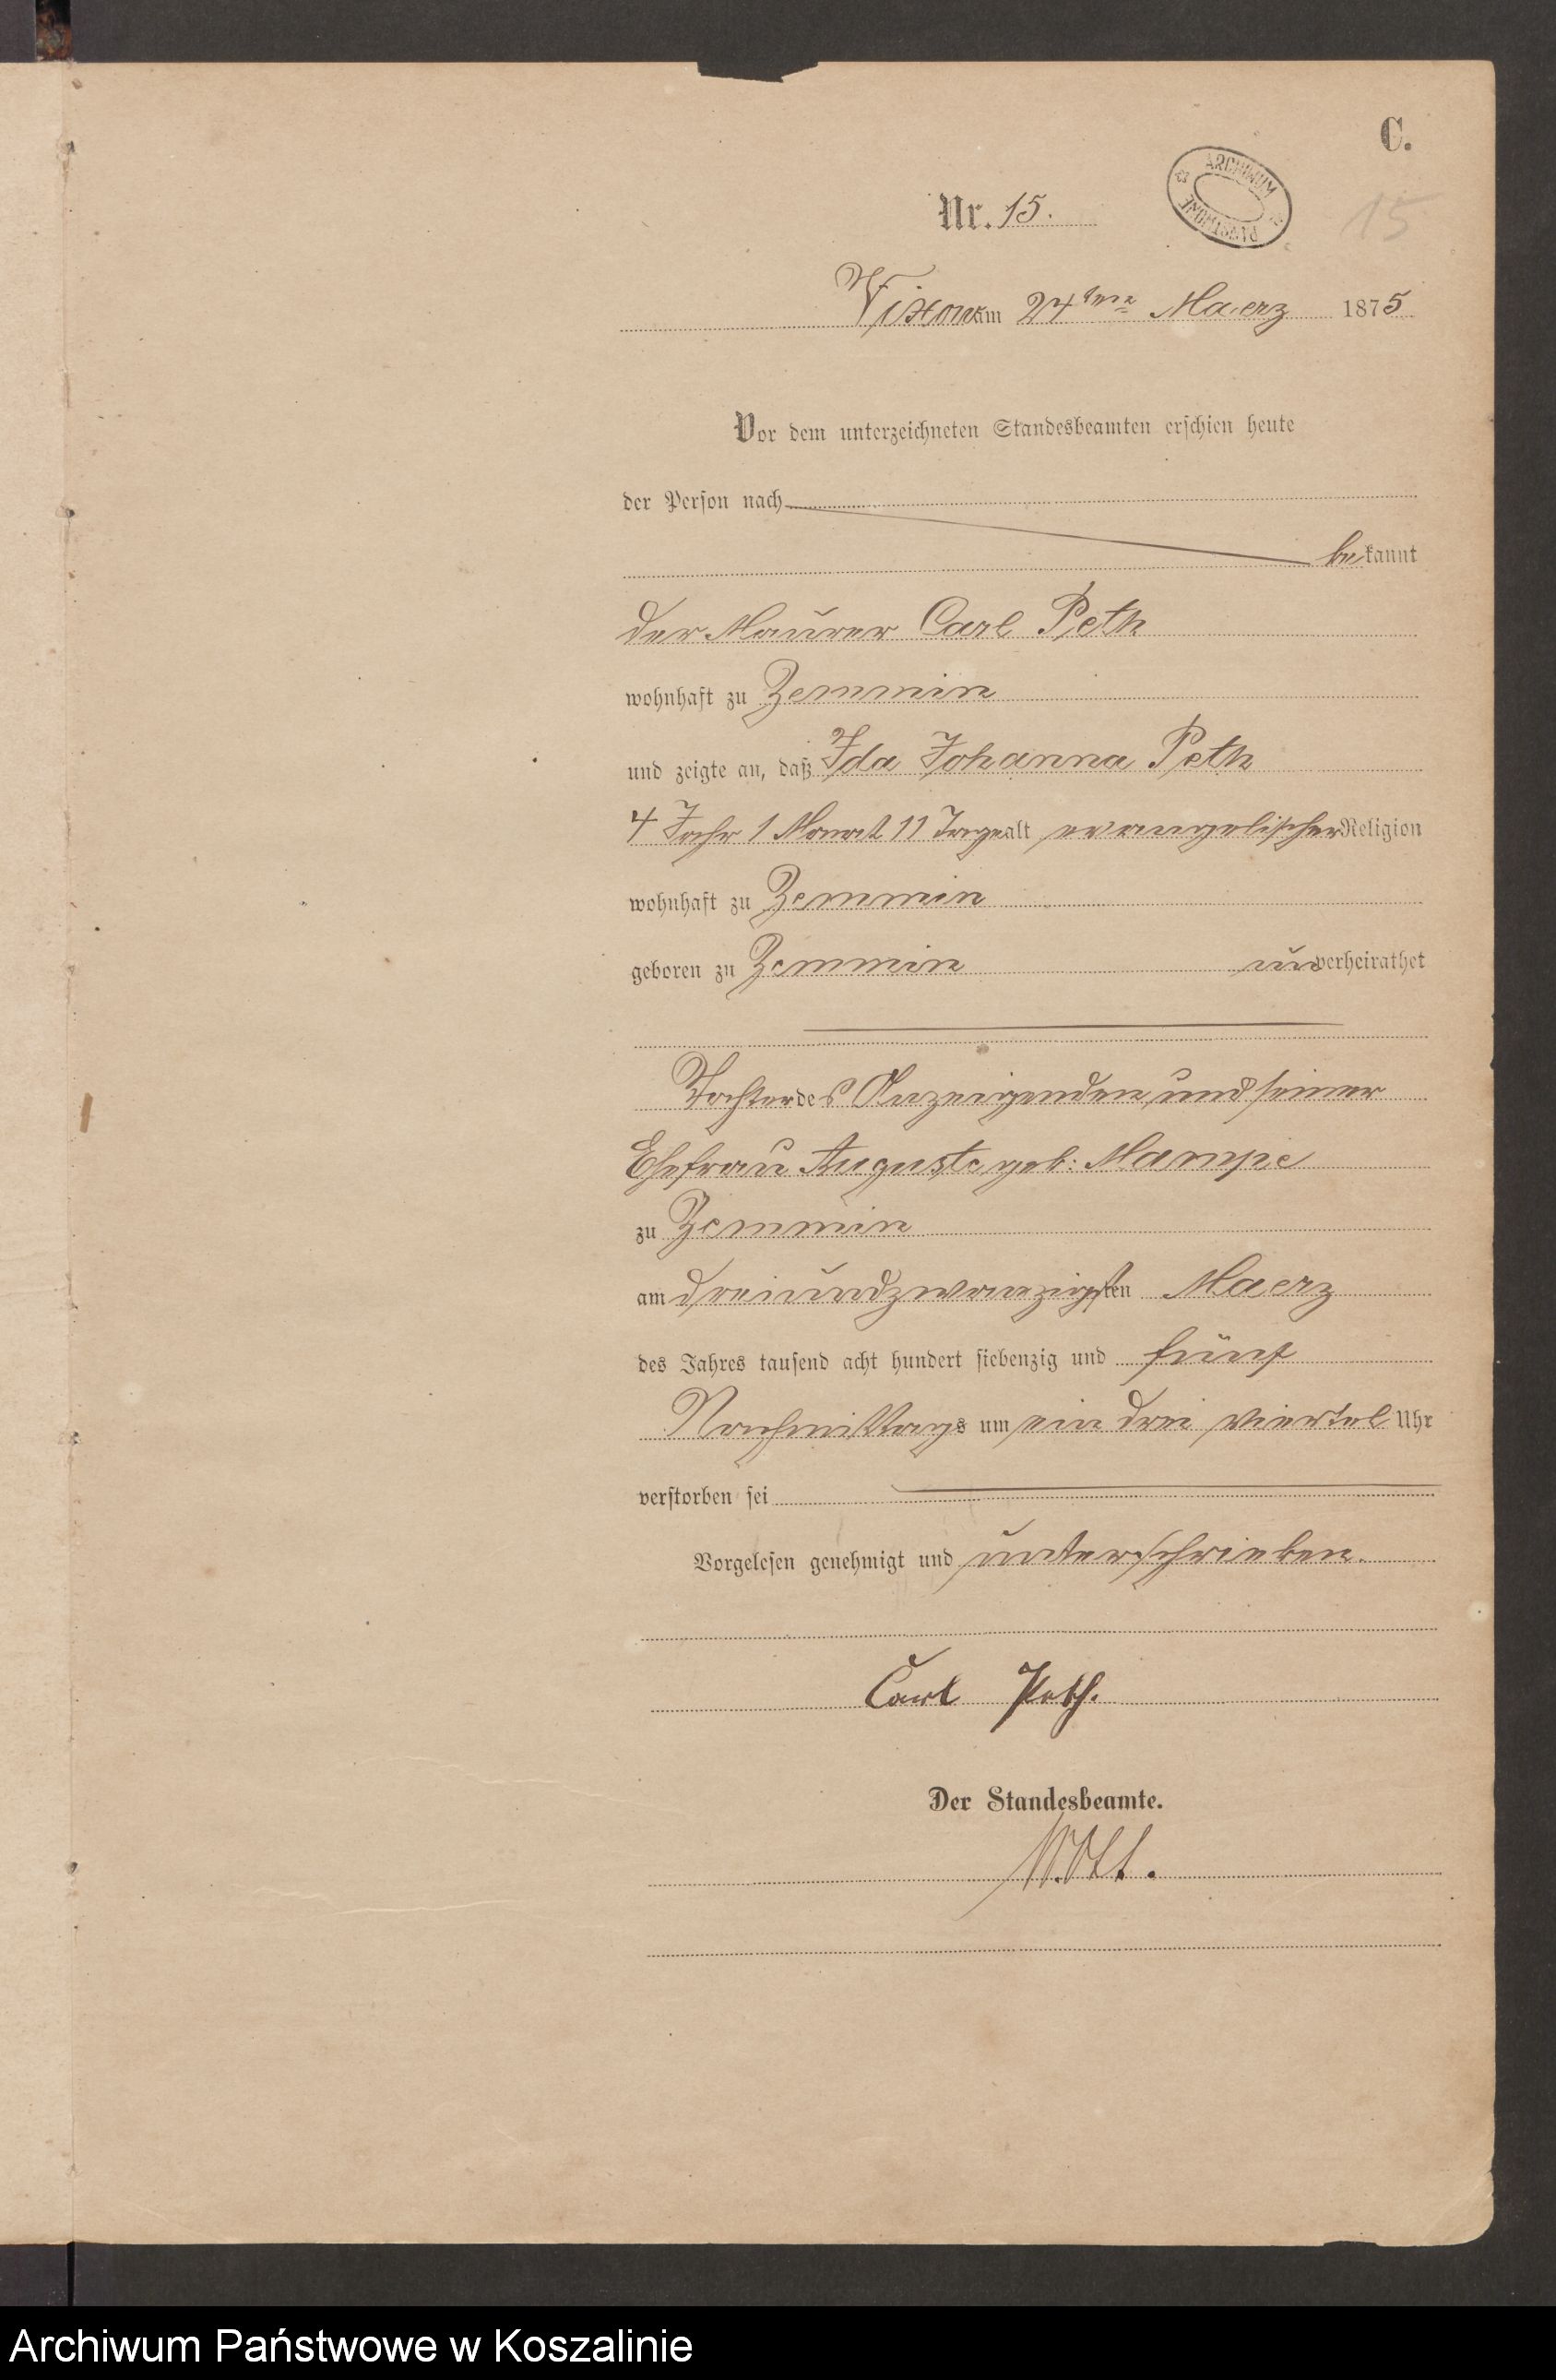 C.
ARCHIWUM PAŃSTWOWE
Nr. 15.
15
am 24ten Maerz 1875
Vor dem unterzeichneten Standesbeamten erschien heute
der Person nach
bekannt
der Maurer Carl Peth
wohnhaft zu Zemmin
und zeigte an, daß Ida Johanna Peth
4 Jahr 1 Monat 11 Tage alt evangelischer Religion
wohnhaft zu Zemmin
geboren zu Zemmin unverheirathet
Tochter des Anzeigenden und seiner
Ehefrau Auguste geb: Mampe
zu Zemmin
am dreiundzwanzigsten Maerz
des Jahres tausend acht hundert siebenzig und fünf
Nachmittags um ein drei viertel Uhr
verstorben sei
Vorgelesen genehmigt und unterschrieben.
Carl Peth.
Der Standesbeamte.
Archiwum Państwowe w Koszalinie